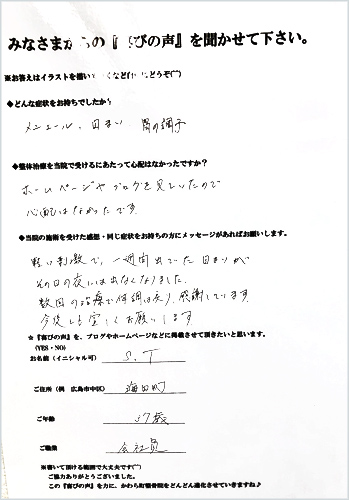 みなさまからの『喜びの声』を聞かせて下さい。
※お答えはイラストを描いて くなど(^^)どうぞ(^^)
◆どんな症状をお持ちでしたか?
メニエール、目まい 胃の調子
◆整体治療を当院で受けるにあたって心配はなかったですか?
ホームページやブログを見ていたので
心配はなかったです
◆当院の施術を受けた感想・同じ症状をお持ちの方にメッセージがあればお願いします。
軽い刺激で、一週間出ていた目まいが
その日の夜には出なくなりました。
数回の治療で体調は戻り、感謝しています
今後とも宜しくお願いします
★『喜びの声』を、ブログやホームページなどに掲載させて頂きたいと思います。
(YES・NO)
お名前(イニシャル可) S.T
ご住所(例 広島市中区) 海田町
ご年齢 37歳
ご職業 会社員
※書いて頂ける範囲で大丈夫です(^^)
ご協力ありがとうございました。
この『喜びの声』を力に、かわら町整骨院をどんどん進化させていきますね♪